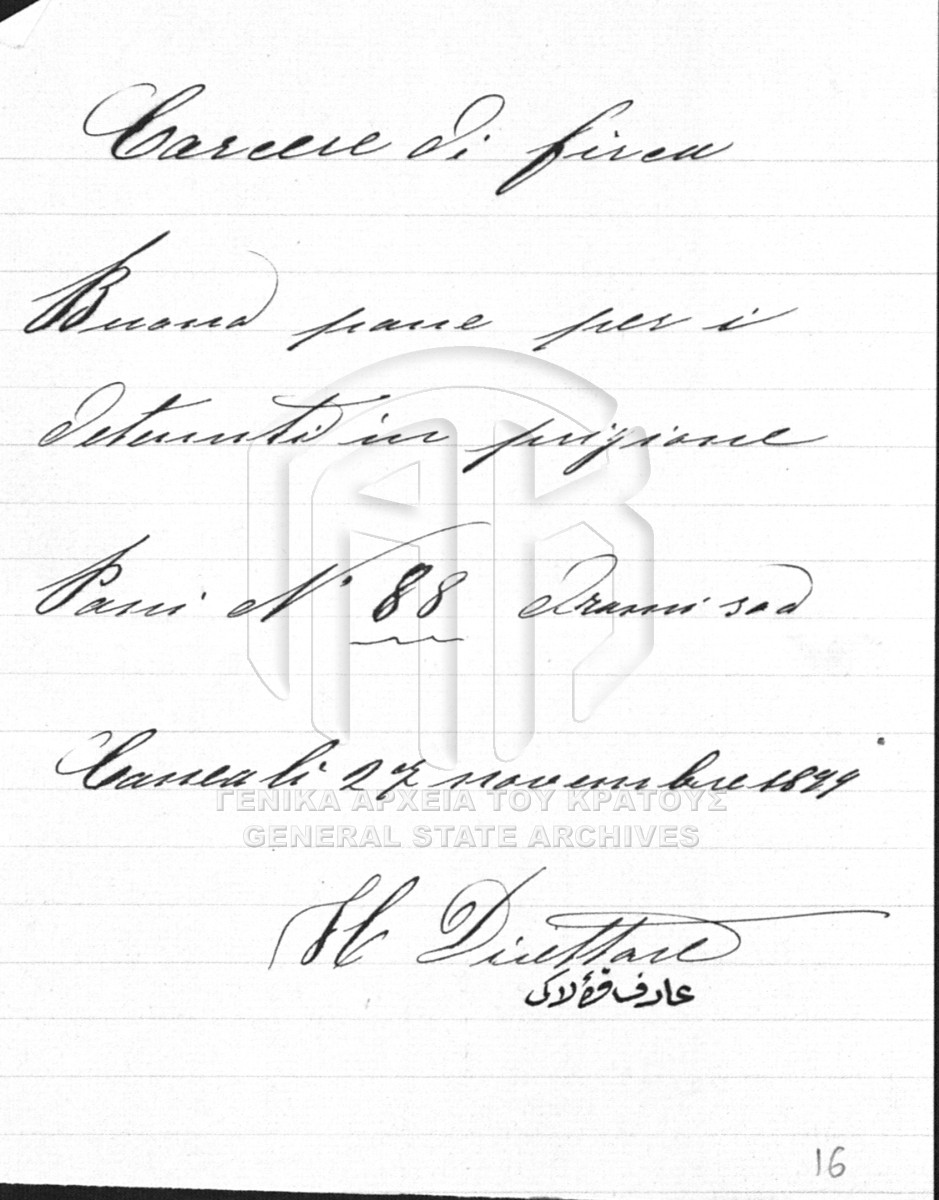 Carcere di firca
Buono pane per i
detenuti in prigione
Pani N° 88 Drami 300
Canea li 27 novembre 1899
ΓΕΝΙΚΑ ΑΡΧΕΙΑ ΤΟΥ ΚΡΑΤΟΥΣ
GENERAL STATE ARCHIVES
Il Direttore
عارف
16